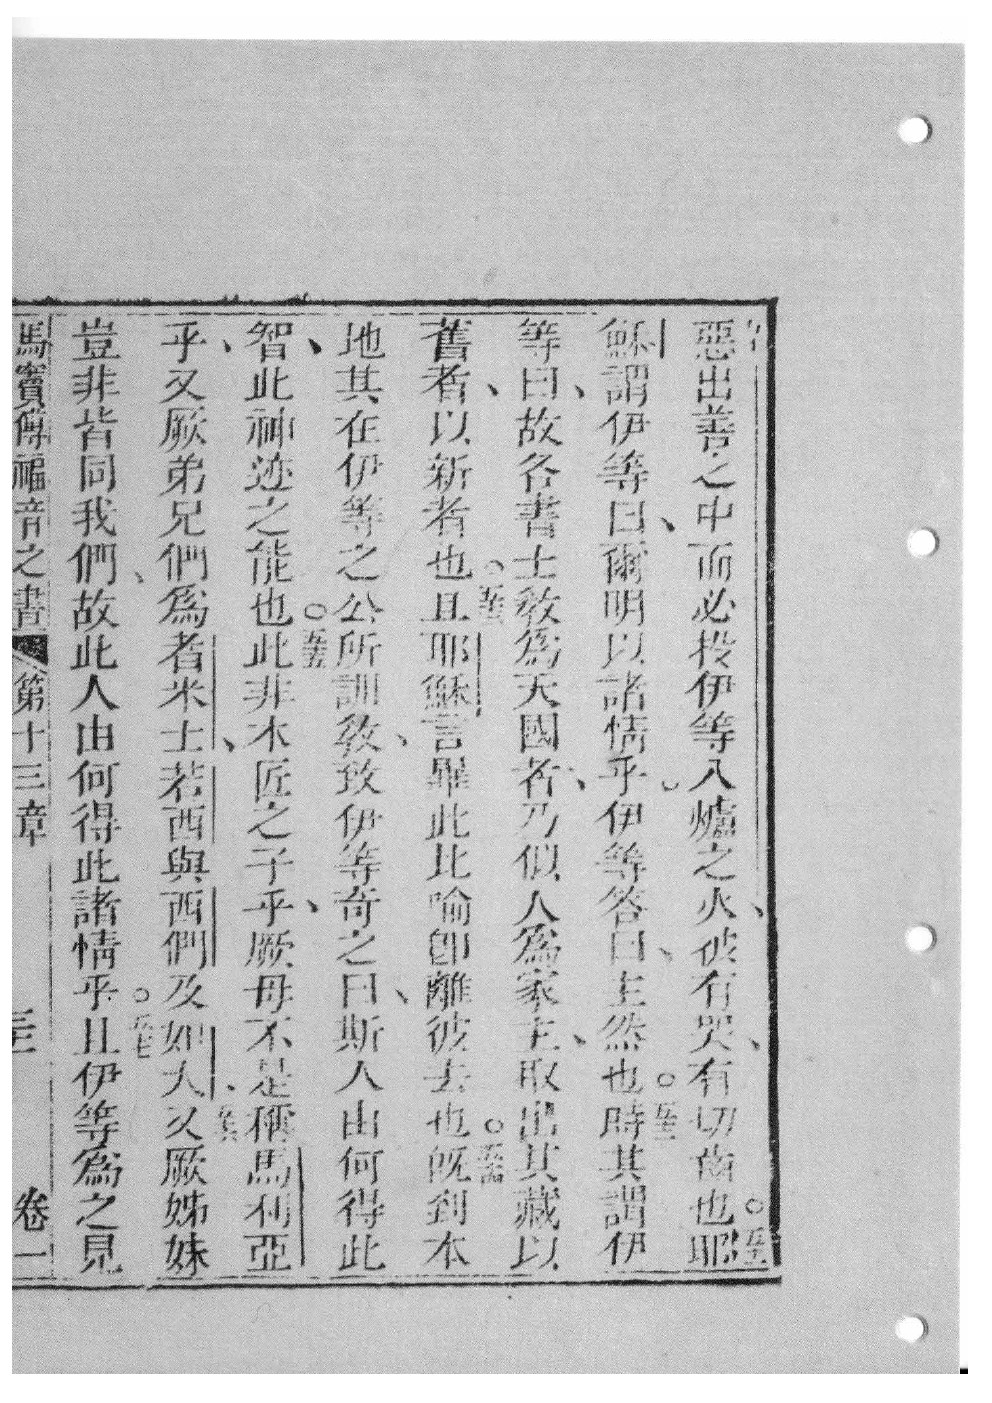 惡出善之中而必投伊等入爐之火、彼有哭、有切齒也○五十一耶
穌謂伊等曰、爾明以諸情乎。伊等答曰、主然也○五十二時其謂伊
等曰、故各書士教為天國者、乃似人為家主、取出其藏以
舊者、以新者也○五十三且耶穌言畢此比喻卽離彼去也○五十四旣到本
地其在伊等之公所訓教、致伊等奇之曰、斯人由何得此
智、此神迹之能也○五十五此非木匠之子乎、厥母不是稱馬利亞
乎、又厥弟兄們為者米士、若西與西們及如大、五十六又厥姊妹
豈非皆同我們、故此人由何得此諸情乎○五十七且伊等為之見
馬竇傳福音之書 第十三章 三十一 卷一